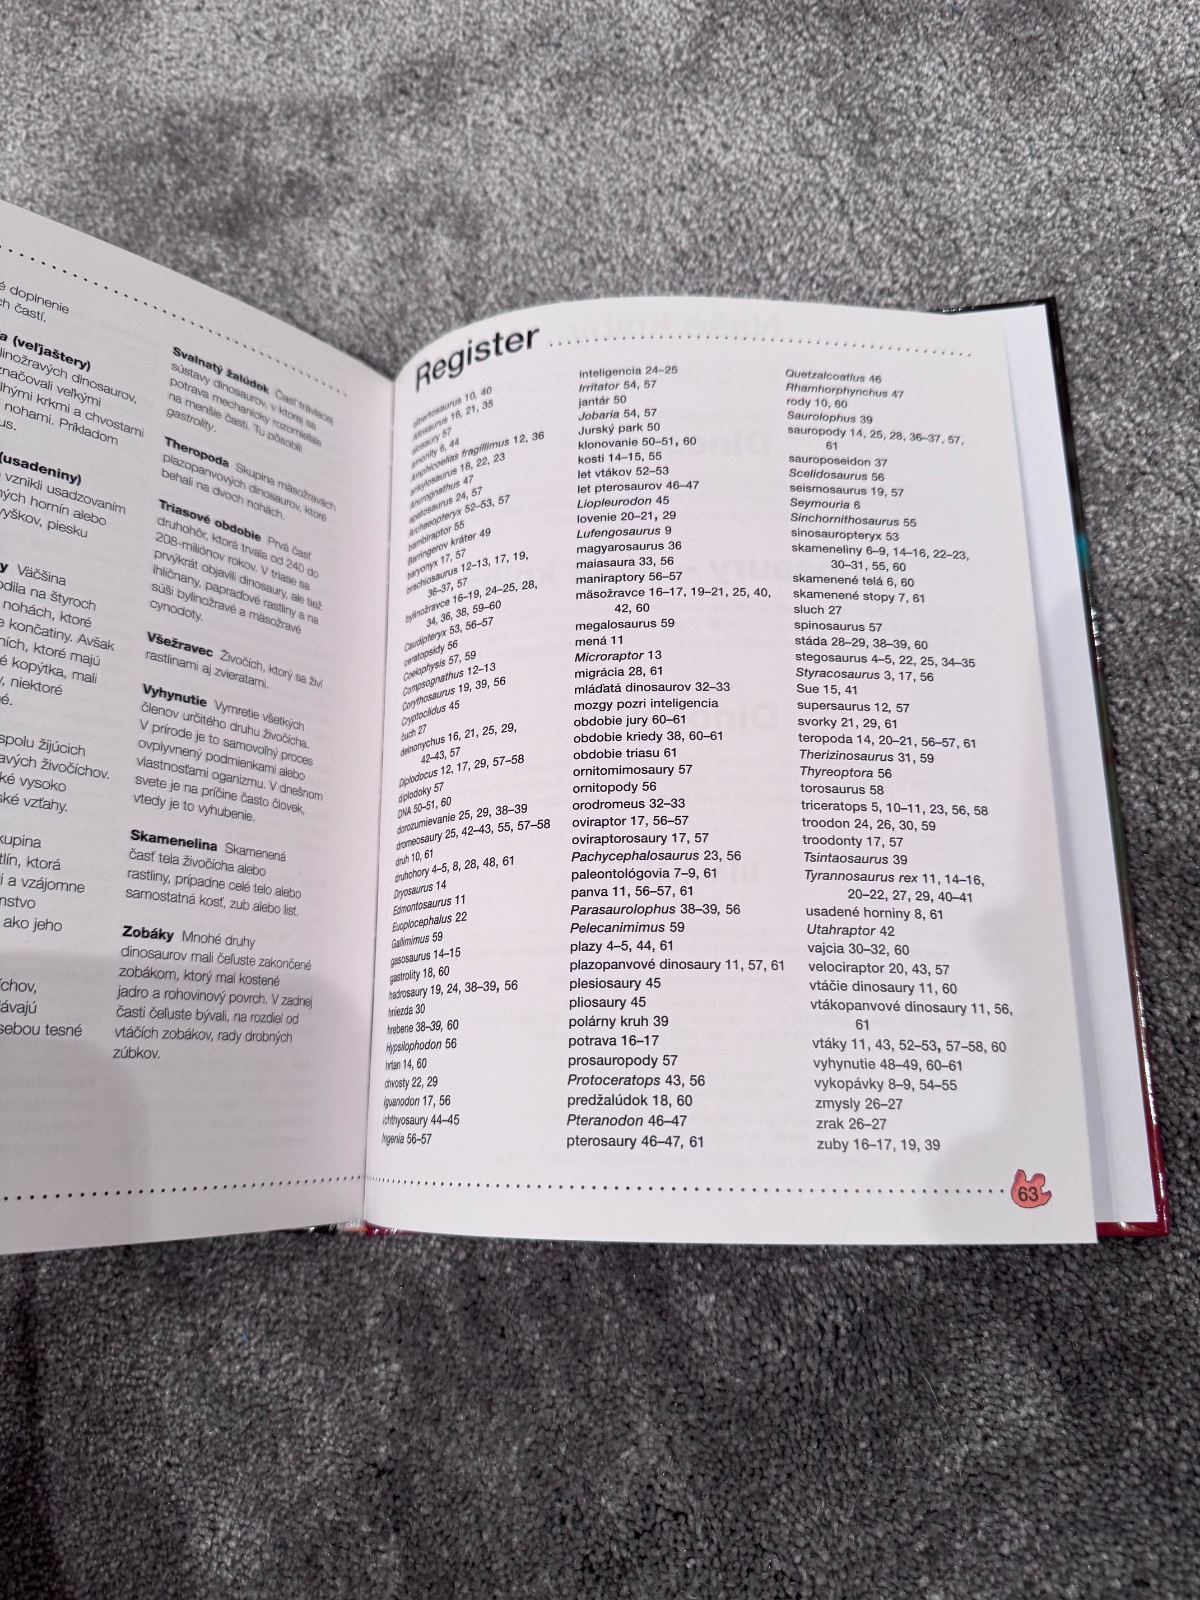 é doplnenie
ch častí.
a (veľjaštery)
linožravých dinosaurov,
značovali veľkými
lhými krkmi a chvostami
nohami. Príkladom
us.
(usadeniny)
vznikli usadzovaním
ných hornín alebo
vyškov, piesku
y Väčšina
odila na štyroch
nohách, ktoré
e končatiny. Avšak
ních, ktoré majú
é kopýtka, mali
, niektoré
né.
spolu žijúcich
avých živočíchov.
ké vysoko
ské vzťahy.
kupina
tlín, ktorá
i a vzájomne
nstvo
ako jeho
íchov,
ávajú
sebou tesné
Svalnatý žalúdok Časť tráviacej
sústavy dinosaurov, v ktorej sa
potrava mechanicky rozomieľala
na menšie časti. Tu pôsobili
gastrolity.
Theropoda Skupina mäsožravách
plazopanvových dinosaurov, ktoré
behali na dvoch nohách.
Triasové obdobie Prvá časť
druhohôr, ktorá trvala od 240 do
208-miliónov rokov. V triase sa
prvýkrát objavili dinosaury, ale tiež
ihličnany, papraďové rastliny a na
súši bylinožravé a mäsožravé
cynodoty.
Všežravec Živočích, ktorý sa živí
rastlinami aj zvieratami.
Vyhynutie Vymretie všetkých
členov určitého druhu živočícha.
V prírode je to samovoľný proces
ovplyvnený podmienkami alebo
vlastnosťami oganizmu. V dnešnom
svete je na príčine často človek,
vtedy je to vyhubenie.
Skamenelina Skamenená
časť tela živočícha alebo
rastliny, prípadne celé telo alebo
samostatná kosť, zub alebo list.
Zobáky Mnohé druhy
dinosaurov mali čeľuste zakončené
zobákom, ktorý mal kostené
jadro a rohovinový povrch. V zadnej
časti čeľuste bývali, na rozdiel od
vtáčích zobákov, rady drobných
zúbkov.
Register
albertosaurus 10, 40
Allosaurus 16, 21, 35
57
amonity 6, 44
Amphicoelias fragillimus 12, 36
ankylosaurus 18, 22, 23
Anurognathus 47
apatosaurus 24, 57
Archaeopteryx 52–53, 57
bambiraptor 55
Barringerov kráter 49
baryonyx 17, 57
brachiosaurus 12–13, 17, 19,
36–37, 57
bylinožravce 16–19, 24–25, 28,
34, 36, 38, 59–60
Caudipteryx 53, 56–57
ceratopsidy 56
Coelophysis 57, 59
Compsognathus 12–13
Corythosaurus 19, 39, 56
Cryptoclidus 45
čuch 27
deinonychus 16, 21, 25, 29,
42–43, 57
Diplodocus 12, 17, 29, 57–58
diplodoky 57
DNA 50–51, 60
dorozumievanie 25, 29, 38–39
dromeosaury 25, 42–43, 55, 57–58
druh 10, 61
druhohory 4–5, 8, 28, 48, 61
Dryosaurus 14
Edmontosaurus 11
Euoplocephalus 22
Gallimimus 59
gasosaurus 14–15
gastrolity 18, 60
hadrosaury 19, 24, 38–39, 56
hniezda 30
hrebene 38–39, 60
Hypsilophodon 56
hrtan 14, 60
chvosty 22, 29
iguanodon 17, 56
ichthyosaury 44–45
Ingenia 56–57
inteligencia 24–25
Irritator 54, 57
jantár 50
Jobaria 54, 57
Jurský park 50
klonovanie 50–51, 60
kosti 14–15, 55
let vtákov 52–53
let pterosaurov 46–47
Liopleurodon 45
lovenie 20–21, 29
Lufengosaurus 9
magyarosaurus 36
maiasaura 33, 56
maniraptory 56–57
mäsožravce 16–17, 19–21, 25, 40,
42, 60
megalosaurus 59
mená 11
Microraptor 13
migrácia 28, 61
mláďatá dinosaurov 32–33
mozgy pozri inteligencia
obdobie jury 60–61
obdobie kriedy 38, 60–61
obdobie triasu 61
ornitomimosaury 57
ornitopody 56
orodromeus 32–33
oviraptor 17, 56–57
oviraptorosaury 17, 57
Pachycephalosaurus 23, 56
paleontológovia 7–9, 61
panva 11, 56–57, 61
Parasaurolophus 38–39, 56
Pelecanimimus 59
plazy 4–5, 44, 61
plazopanvové dinosaury 11, 57, 61
plesiosaury 45
pliosaury 45
polárny kruh 39
potrava 16–17
prosauropody 57
Protoceratops 43, 56
predžalúdok 18, 60
Pteranodon 46–47
pterosaury 46–47, 61
Quetzalcoatlus 46
Rhamhorphynchus 47
rody 10, 60
Saurolophus 39
sauropody 14, 25, 28, 36–37, 57,
61
sauroposeidon 37
Scelidosaurus 56
seismosaurus 19, 57
Seymouria 6
Sinchornithosaurus 55
sinosauropteryx 53
skameneliny 6–9, 14–16, 22–23,
30–31, 55, 60
skamenené telá 6, 60
skamenené stopy 7, 61
sluch 27
spinosaurus 57
stáda 28–29, 38–39, 60
stegosaurus 4–5, 22, 25, 34–35
Styracosaurus 3, 17, 56
Sue 15, 41
supersaurus 12, 57
svorky 21, 29, 61
teropoda 14, 20–21, 56–57, 61
Therizinosaurus 31, 59
Thyreoptora 56
torosaurus 58
triceratops 5, 10–11, 23, 56, 58
troodon 24, 26, 30, 59
troodonty 17, 57
Tsintaosaurus 39
Tyrannosaurus rex 11, 14–16,
20–22, 27, 29, 40–41
usadené horniny 8, 61
Utahraptor 42
vajcia 30–32, 60
velociraptor 20, 43, 57
vtáčie dinosaury 11, 60
vtákopanvové dinosaury 11, 56,
61
vtáky 11, 43, 52–53, 57–58, 60
vyhynutie 48–49, 60–61
vykopávky 8–9, 54–55
zmysly 26–27
zrak 26–27
zuby 16–17, 19, 39
63